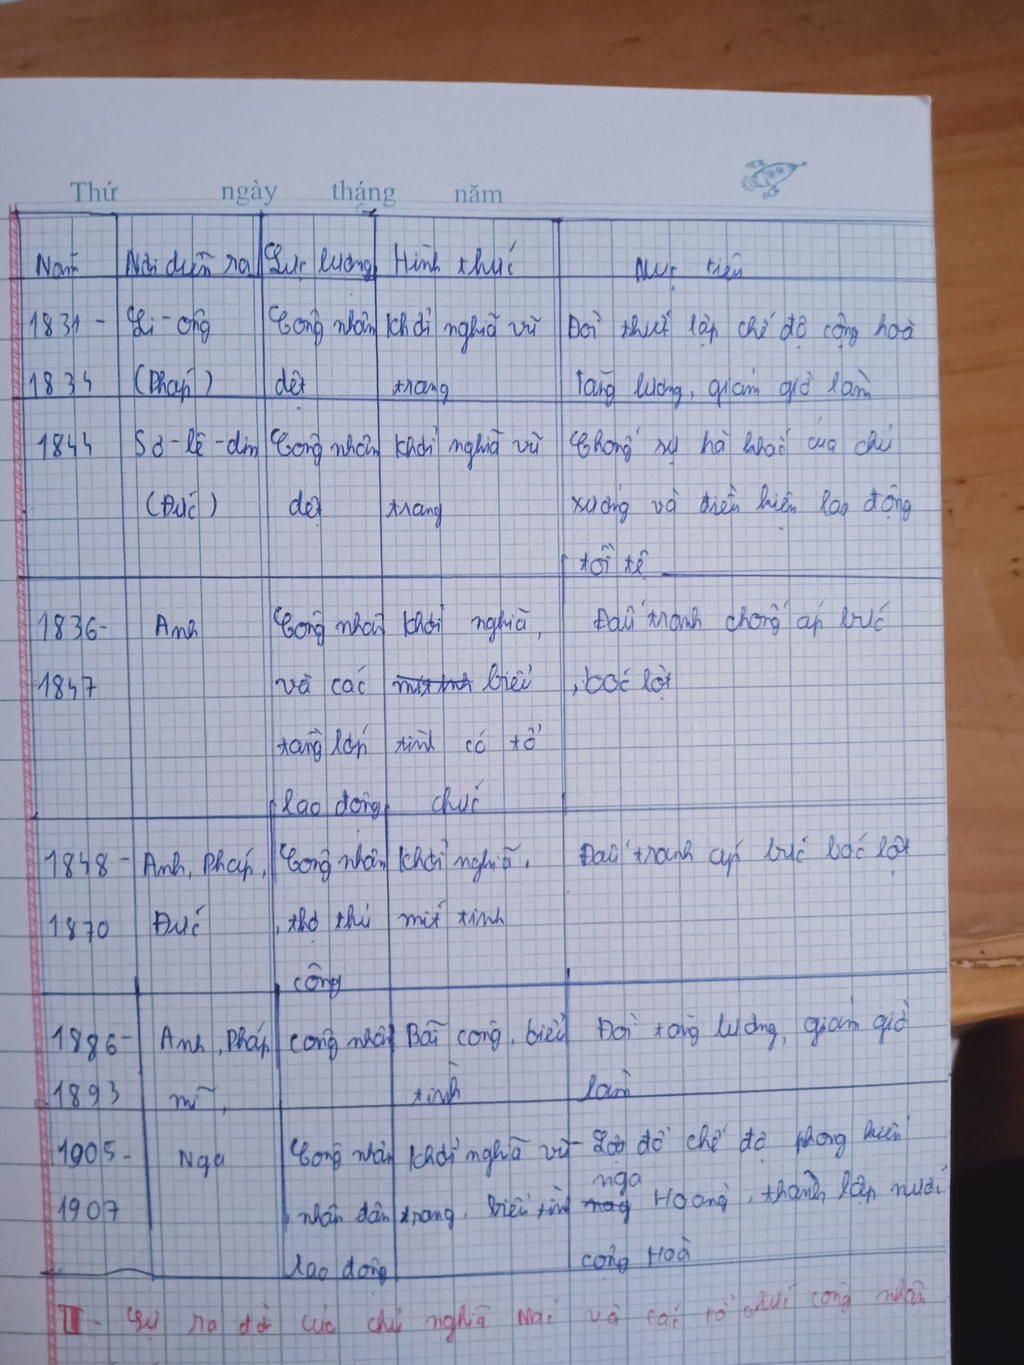 Thứ ngày tháng năm
Năm Nơi diễn ra Lực lượng Hình thức Mục tiêu
1831 - Li-ông Công nhân Khởi nghĩa vũ Đòi thiết lập chế độ cộng hoà
1834 (Pháp) dệt trang tăng lương, giảm giờ làm
1844 Sơ-lê-din Công nhân khởi nghĩa vũ Chống sự hà khắc của chủ
(Đức) dệt trang xưởng và điều kiện lao động
tồi tệ
1836- Anh Công nhân khởi nghĩa, Đấu tranh chống áp bức
1847 và các biểu , bóc lột
tầng lớp tình có tổ
lao động chức
1848 - Anh, Pháp, Công nhân khởi nghĩa, Đấu tranh áp bức bóc lột
1870 Đức , thợ thủ mít tinh
công
1886- Anh, Pháp công nhân Bãi công, biểu Đòi tăng lương, giảm giờ
1893 mĩ, tình làm
1905- Nga Công nhân khởi nghĩa vũ - Lật đổ chế độ phong kiến
nga
1907 , nhân dân trang, biểu tình Hoàng, thành lập nước
lao động cộng Hoà
II - Sự ra đời của chủ nghĩa Mác và các tổ chức công nhân